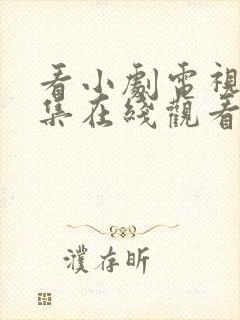 看小劇電視
集在綫觀看
濮存昕